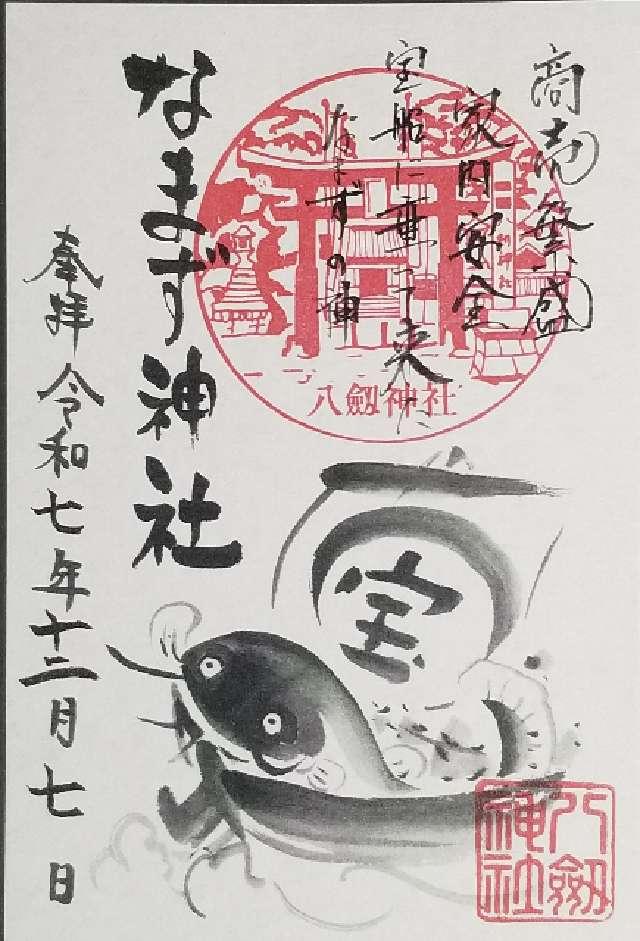 商売繁盛
家内安全
宝船に乗って来た
なまずの神
なまず神社
奉拝 令和七年十二月七日
八劔神社
宝
八劔
神社